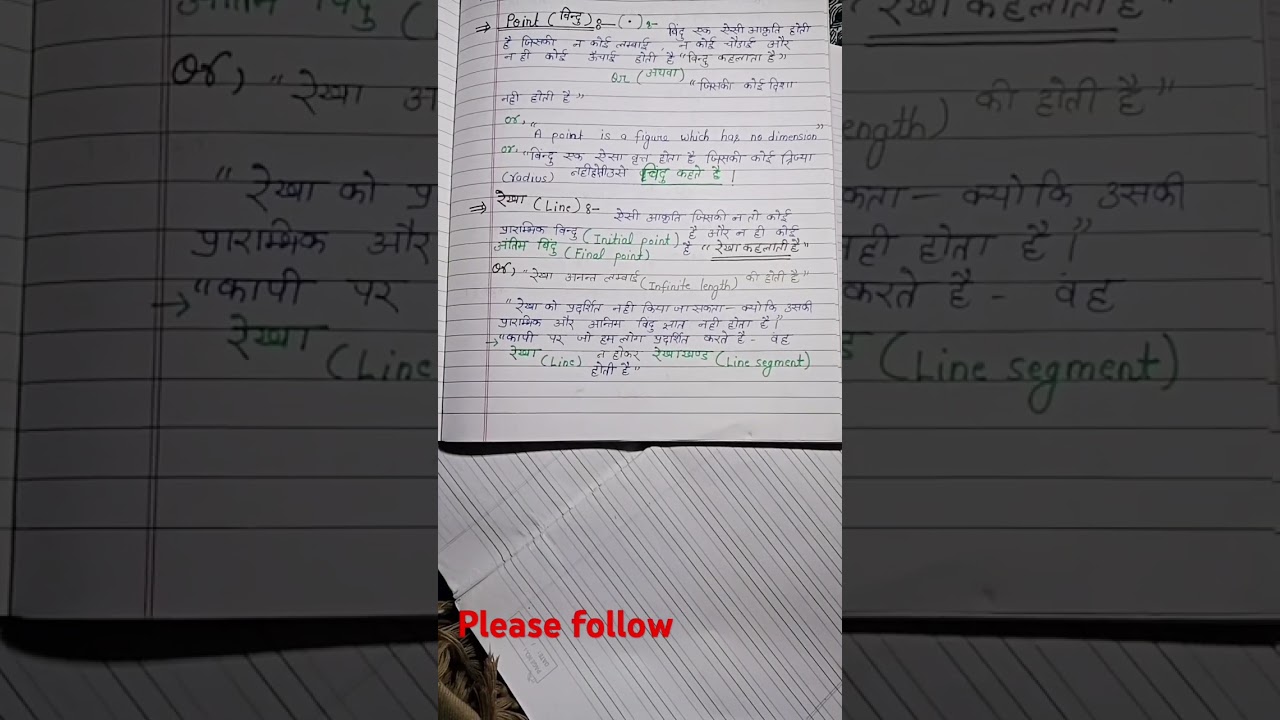 ⇒ Point (बिन्दु) :— (•) :- बिंदु एक ऐसी आकृति होती
है जिसकी न कोई लम्बाई, न कोई चौड़ाई और
न ही कोई ऊँचाई होती है "बिन्दु कहलाता है"
Or (अथवा) "जिसकी कोई दिशा
नही होती है"
or, "A point is a figure which has no dimension"
or, "बिन्दु एक ऐसा वृत्त होता है जिसकी कोई त्रिज्या
(radius) नहीहोतीउसे बिंदु कहते है |
⇒ रेखा (Line) :- ऐसी आकृति जिसकी न तो कोई
प्रारम्भिक बिन्दु (Initial point) है और न ही कोई
अंतिम बिंदु (Final point) है "रेखा कहलाती है"
Or, "रेखा अनन्त लम्बाई (Infinite length) की होती है"
"रेखा को प्रदर्शित नही किया जा सकता - क्योकि उसकी
प्रारम्भिक और अन्तिम बिंदु ज्ञात नही होता है।"
→ "कापी पर जो हम लोग प्रदर्शित करते है - वह
रेखा (Line) न होकर रेखाखण्ड (Line segment)
होती है"
Please follow